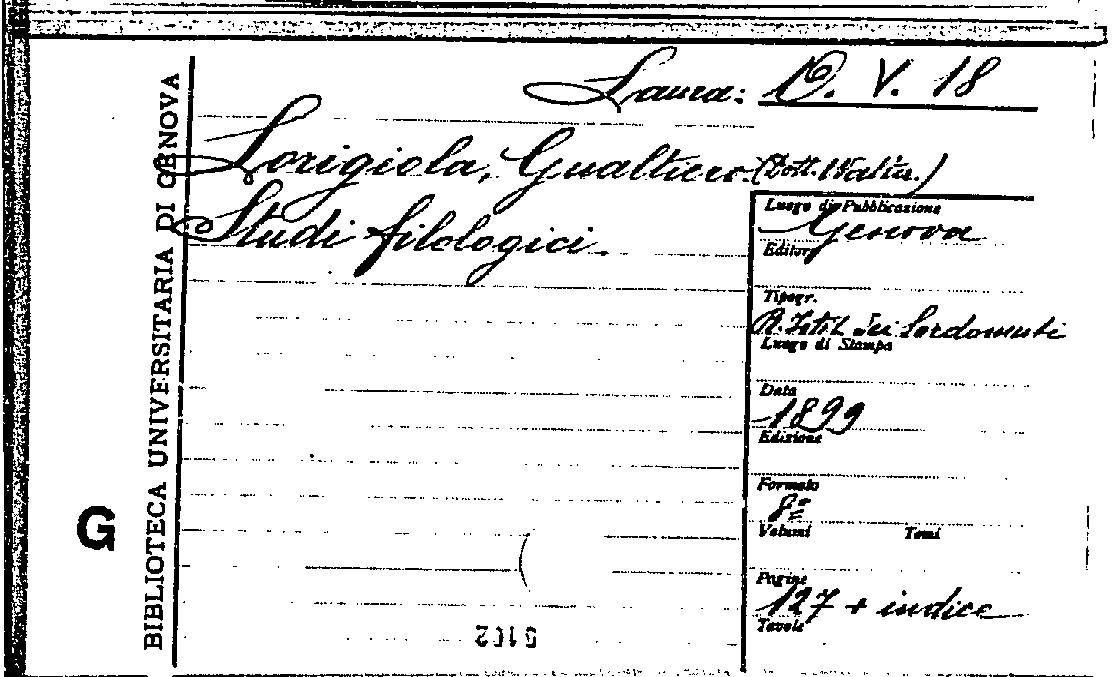 Laura: D. V. 18
Lorigiola, Gualtiero. (Dott. Walter.)
Studi filologici.
BIBLIOTECA UNIVERSITARIA DI GENOVA
G
Luogo di Pubblicazione
Genova
Editore
Tipogr.
R. Istit. dei Sordomuti
Luogo di Stampa
Data
1899
Edizione
Formato
8º
Volumi Tomi
Pagine
127 + indice
Tavole